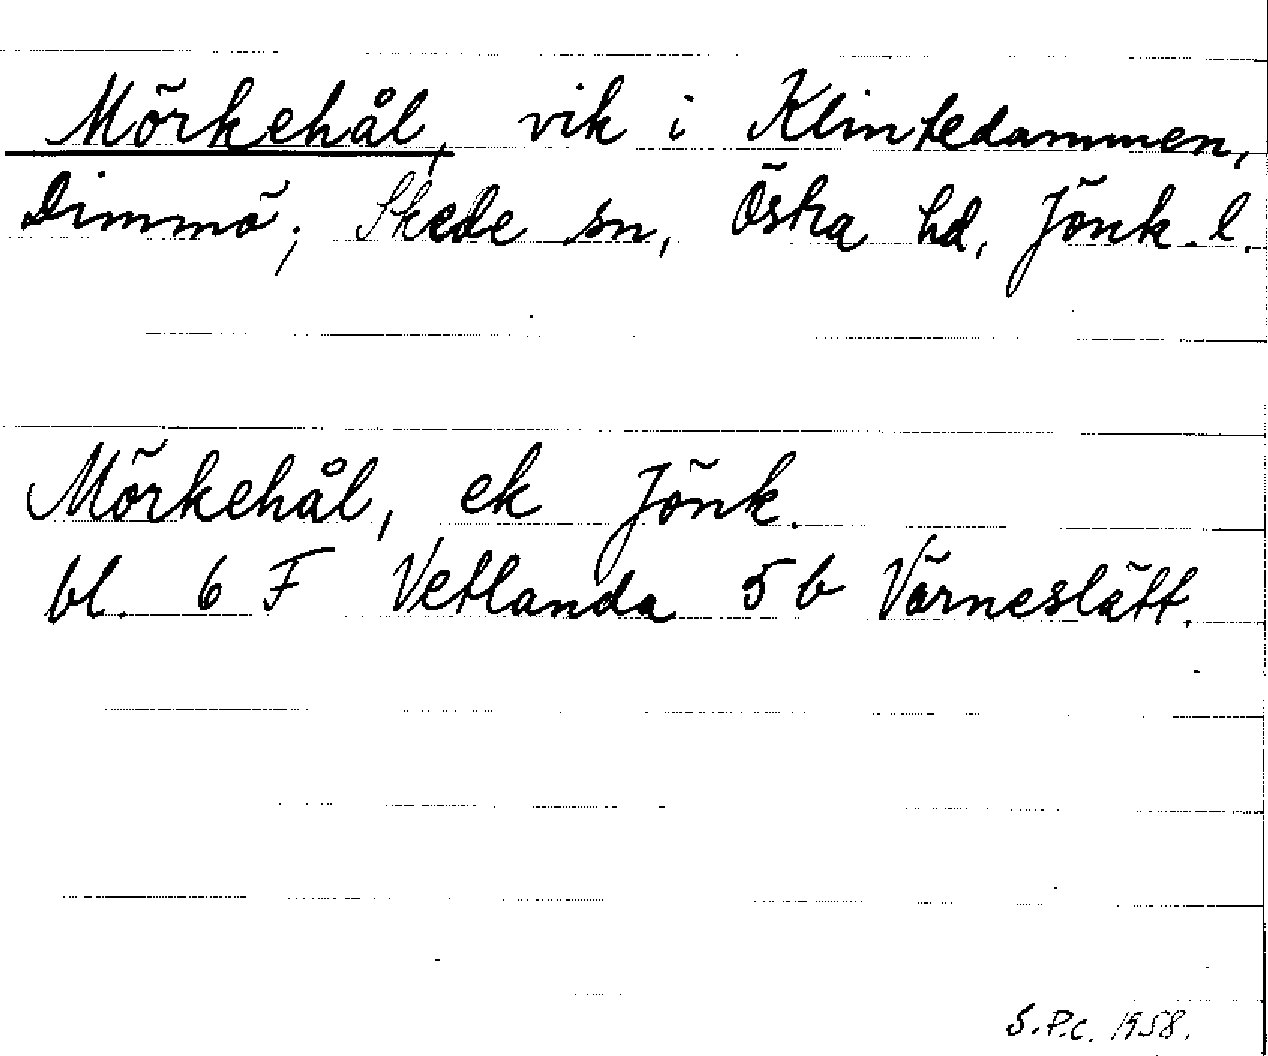 Mörkehål, vik i Klintedammen,
Dimmö; Skede sn, Östra hd, Jönk. l.
Mörkehål, ek Jönk.
bl. 6 F Vetlanda 5 b Värneslätt.
S.P.C. 1958.